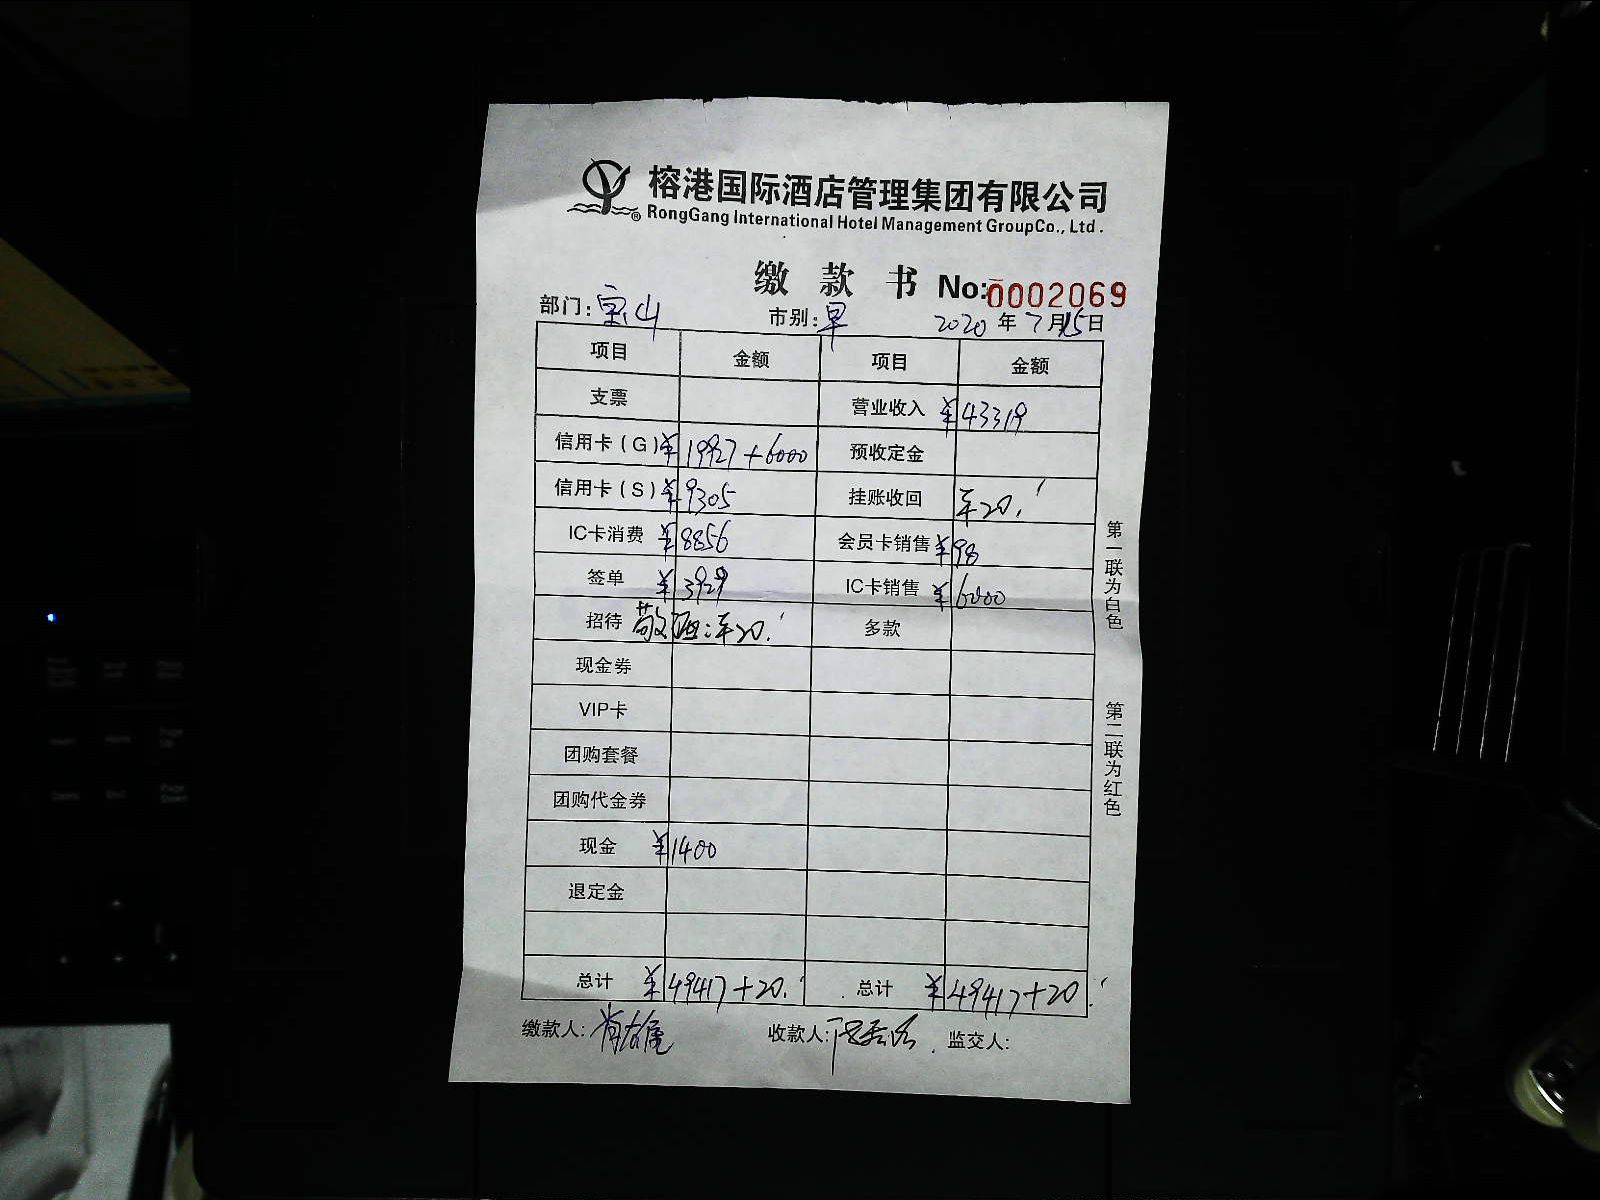 榕港国际酒店管理集团有限公司
® RongGang International Hotel Management GroupCo., Ltd.
缴款书 No:0002069
部门:宝山 市别:早 2020年7月15日
项目 金额 项目 金额
支票 营业收入 ¥43319
信用卡(G) ¥19927+6000 预收定金
信用卡(S) ¥9305 挂账收回 ¥20.
IC卡消费 ¥8856 会员卡销售 ¥98
签单 ¥3929 IC卡销售 ¥6000
招待 ¥20. 多款
现金券
VIP卡
团购套餐
团购代金券
现金 ¥1400
退定金
总计 ¥49417+20. 总计 ¥49417+20.
缴款人: 收款人: 监交人:
第一联为白色
第二联为红色